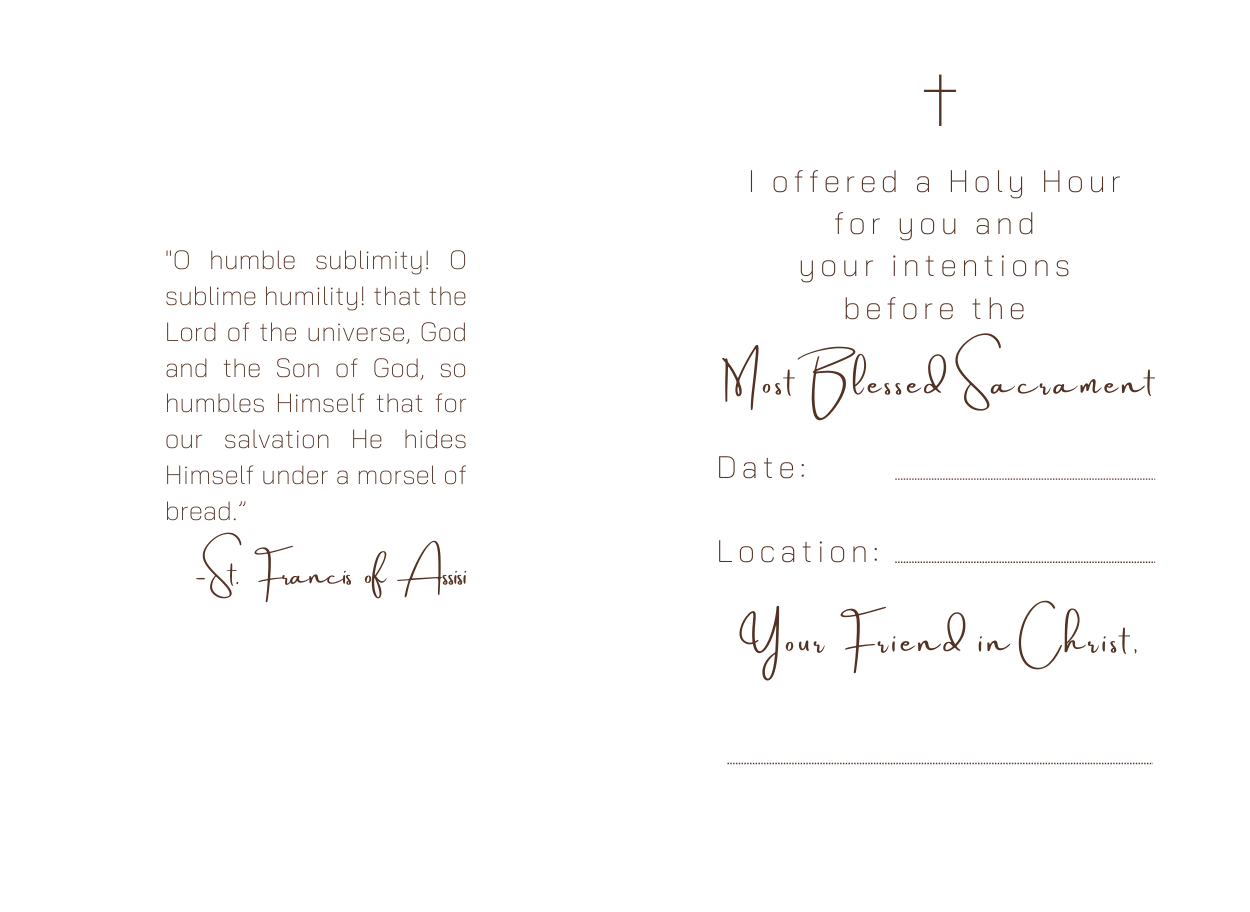 "O humble sublimity! O
sublime humility! that the
Lord of the universe, God
and the Son of God, so
humbles Himself that for
our salvation He hides
Himself under a morsel of
bread.”
-St. Francis of Assisi
I offered a Holy Hour
for you and
your intentions
before the
Most Blessed Sacrament
Date:
Location:
Your Friend in Christ,